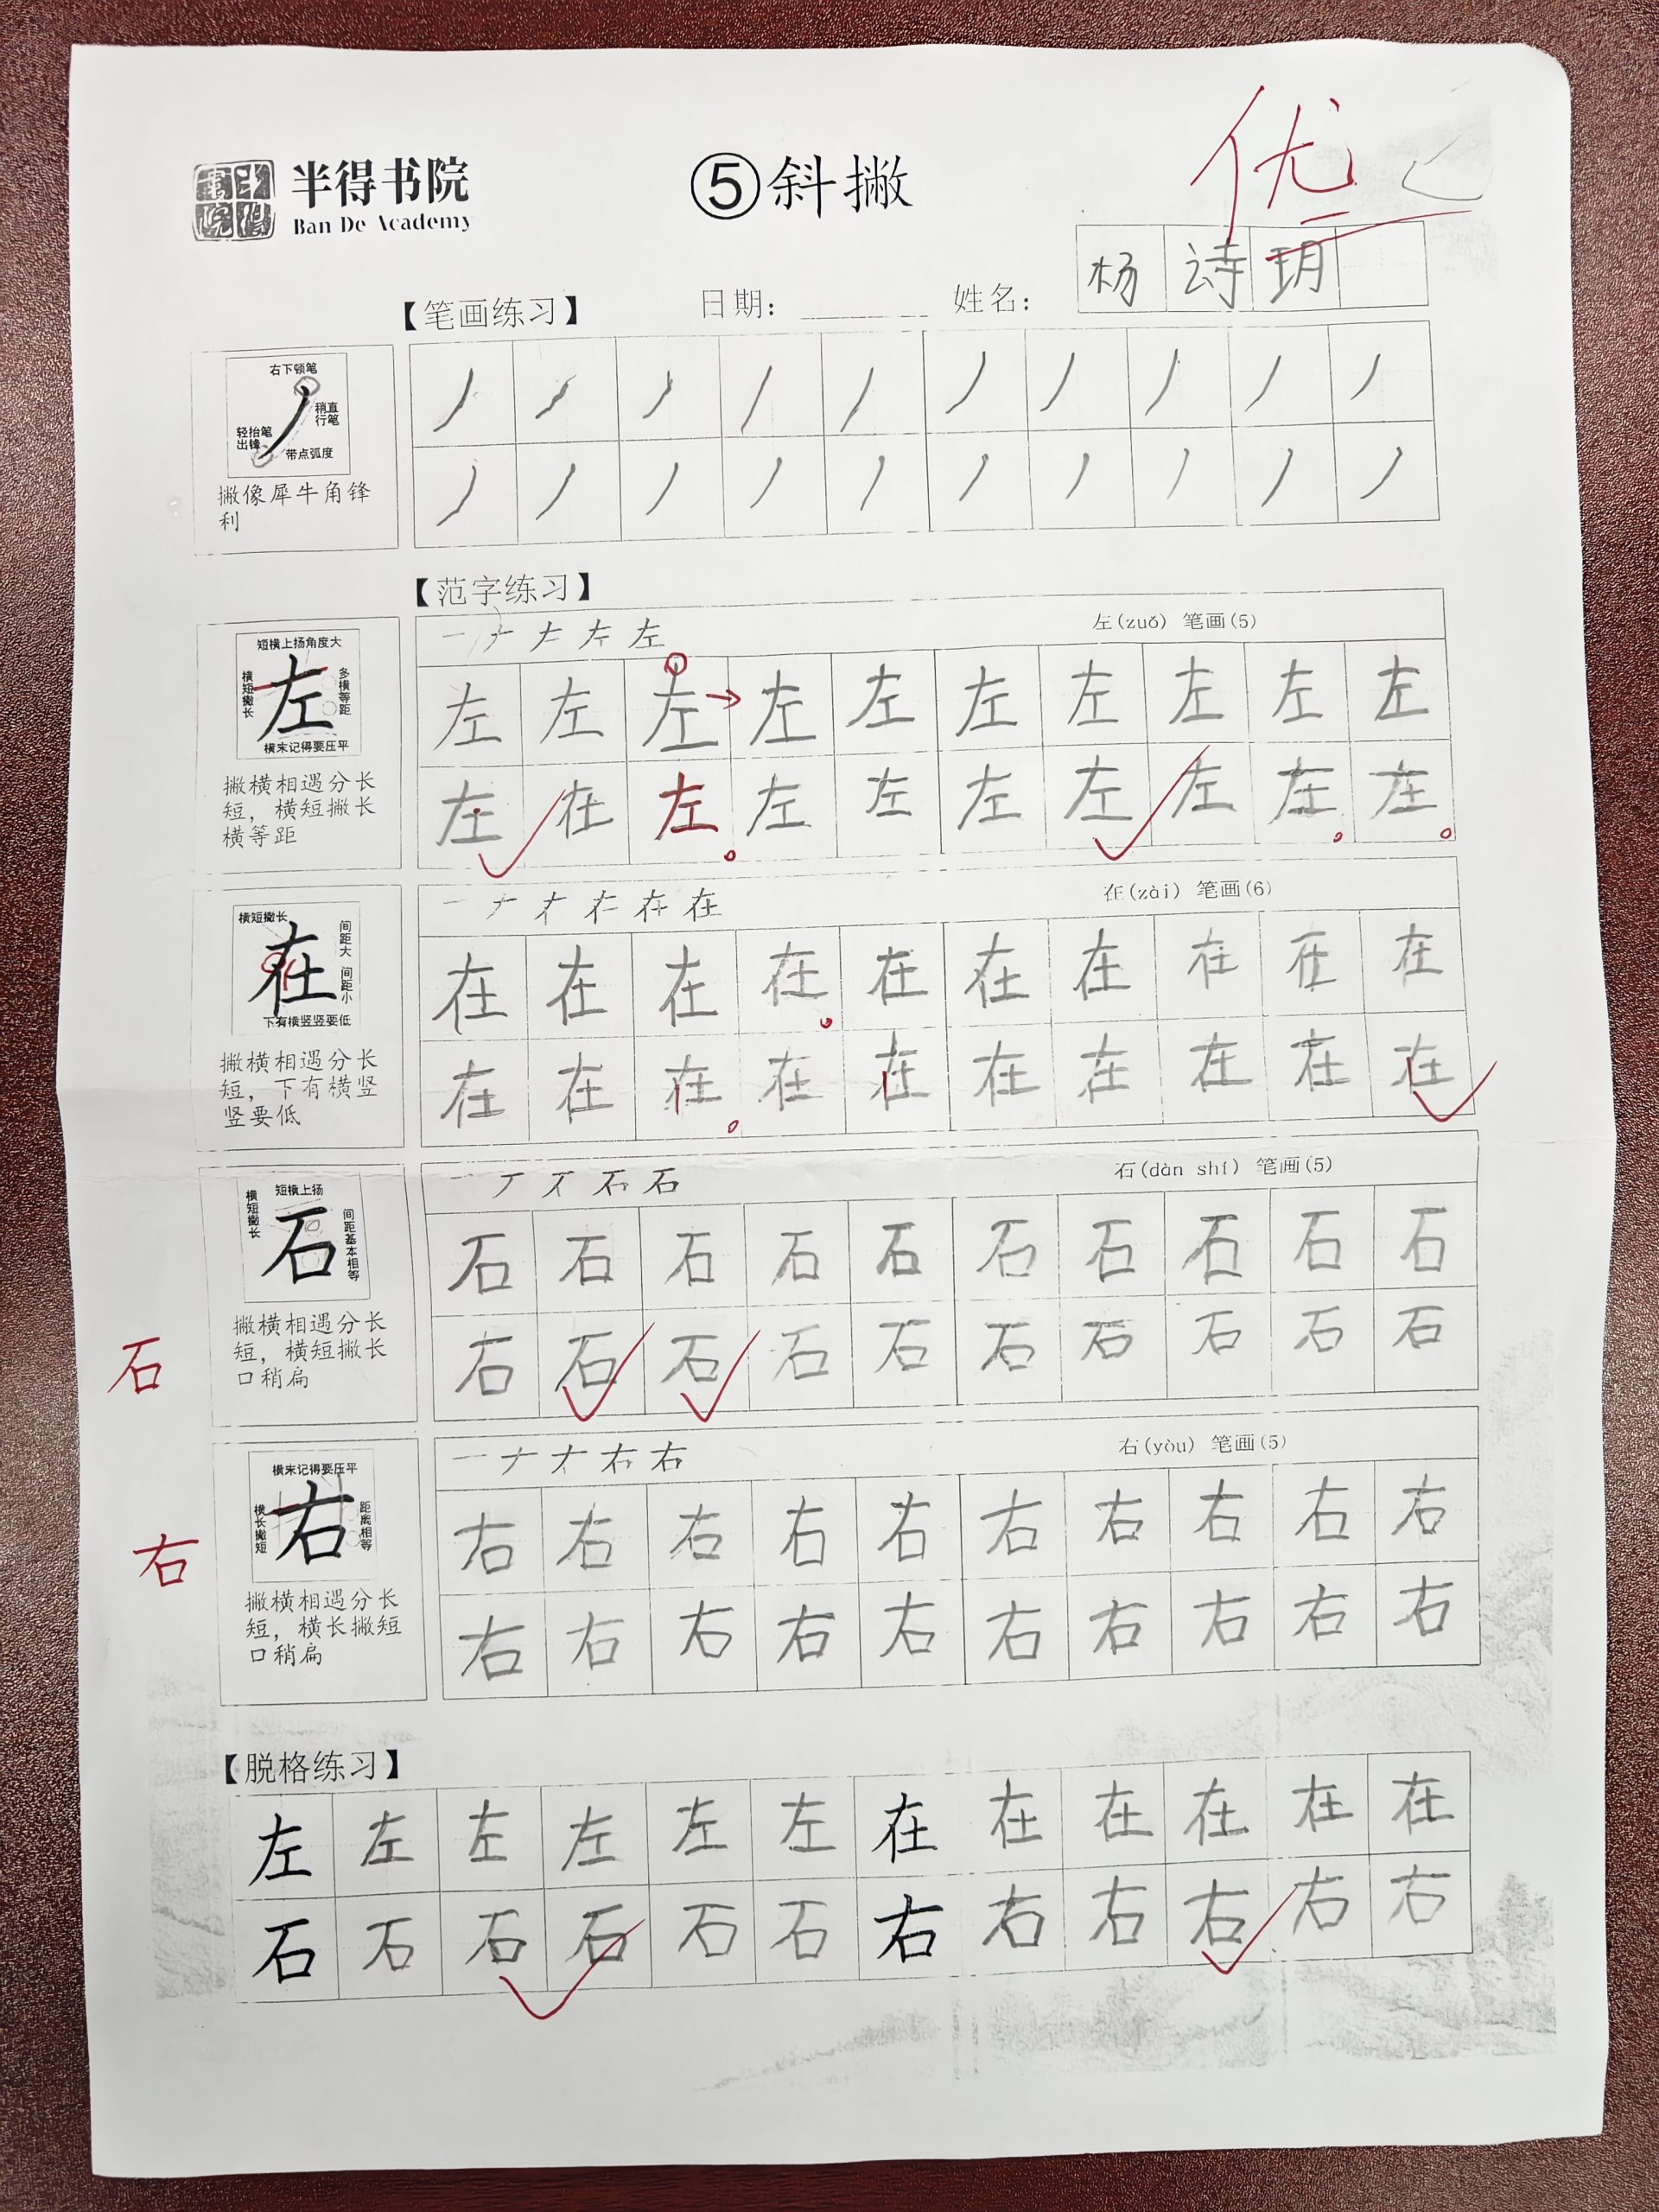 半得书院
Ban De Academy
⑤斜撇
优
【笔画练习】 日期： 姓名： 杨诗玥
右下顿笔
稍直行笔
轻抬笔出锋
带点弧度
撇像犀牛角锋
利
【范字练习】
左(zuǒ) 笔画(5)
短横上扬角度大
横短撇长
左
多横等距
横末记得要压平
撇横相遇分长
短，横短撇长
横等距
左左左左左左左左左左
左在左左左左左左左左
在(zài) 笔画(6)
横短撇长
在
间距大
间距小
下有横竖竖要低
撇横相遇分长
短，下有横竖
竖要低
在在在在在在在在在在
在在在在在在在在在在
石(dàn shí) 笔画(5)
短横上扬
横短撇长
石
间距基本相等
撇横相遇分长
短，横短撇长
口稍扁
石
石石石石石石石石石石
右石石石石石石石石石
右(yòu) 笔画(5)
横末记得要压平
横长撇短
右
距离相等
撇横相遇分长
短，横长撇短
口稍扁
右
右右右右右右右右右右
右右右右右右右右右右
【脱格练习】
左左左左左左在在在在在在
石石石石石石右右右右右右